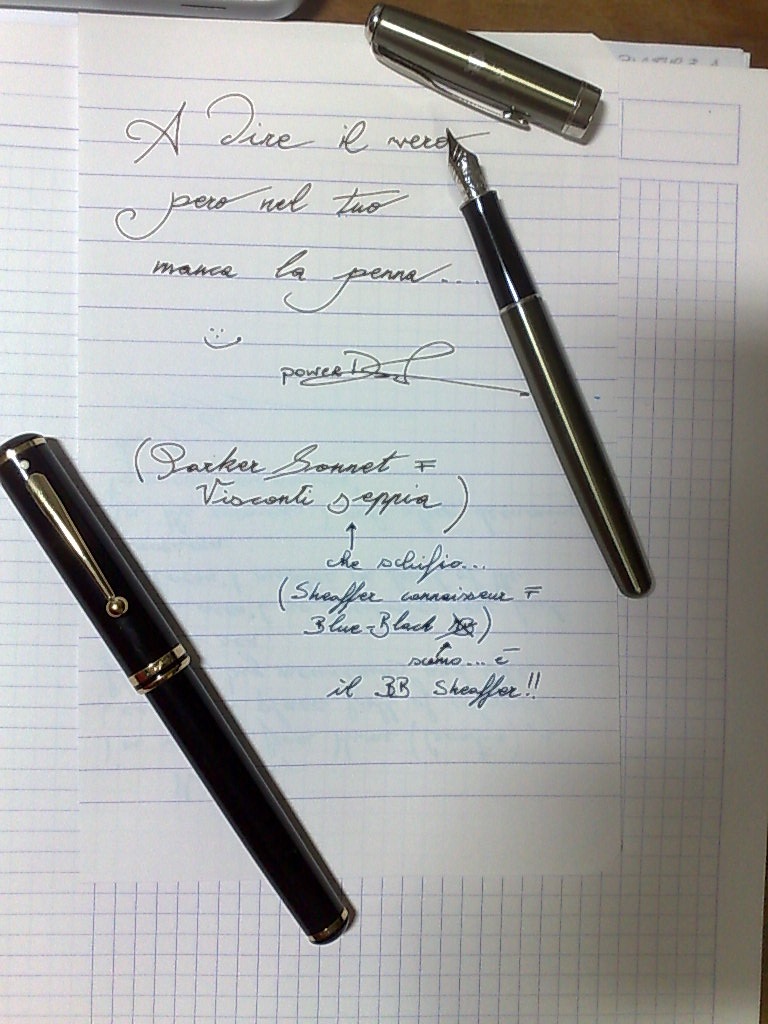 A dire il vero
pero nel tuo
manca la penna....
powerD
(Parker Sonnet F
Visconti seppia)
che schifio...
(Sheaffer connaisseur F
Blue-Black)
... è
il BB Sheaffer!!